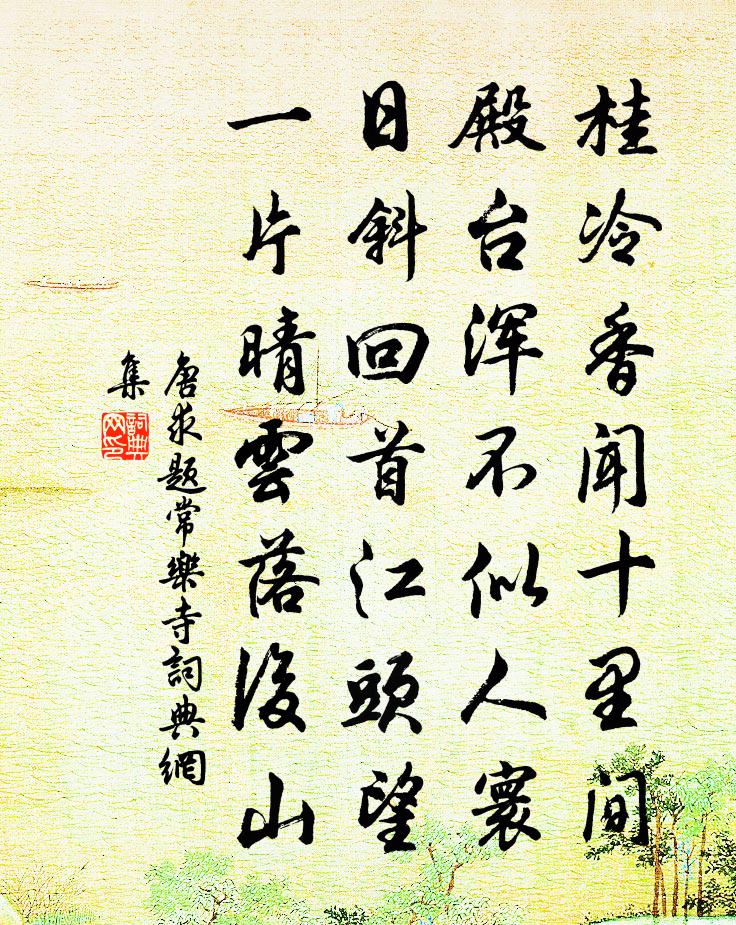 桂冷香闻十里间
殿台浑不似人寰
日斜回首江頭望
一片晴雲落後山
唐求题常樂寺詞典網
集
詞典
网印